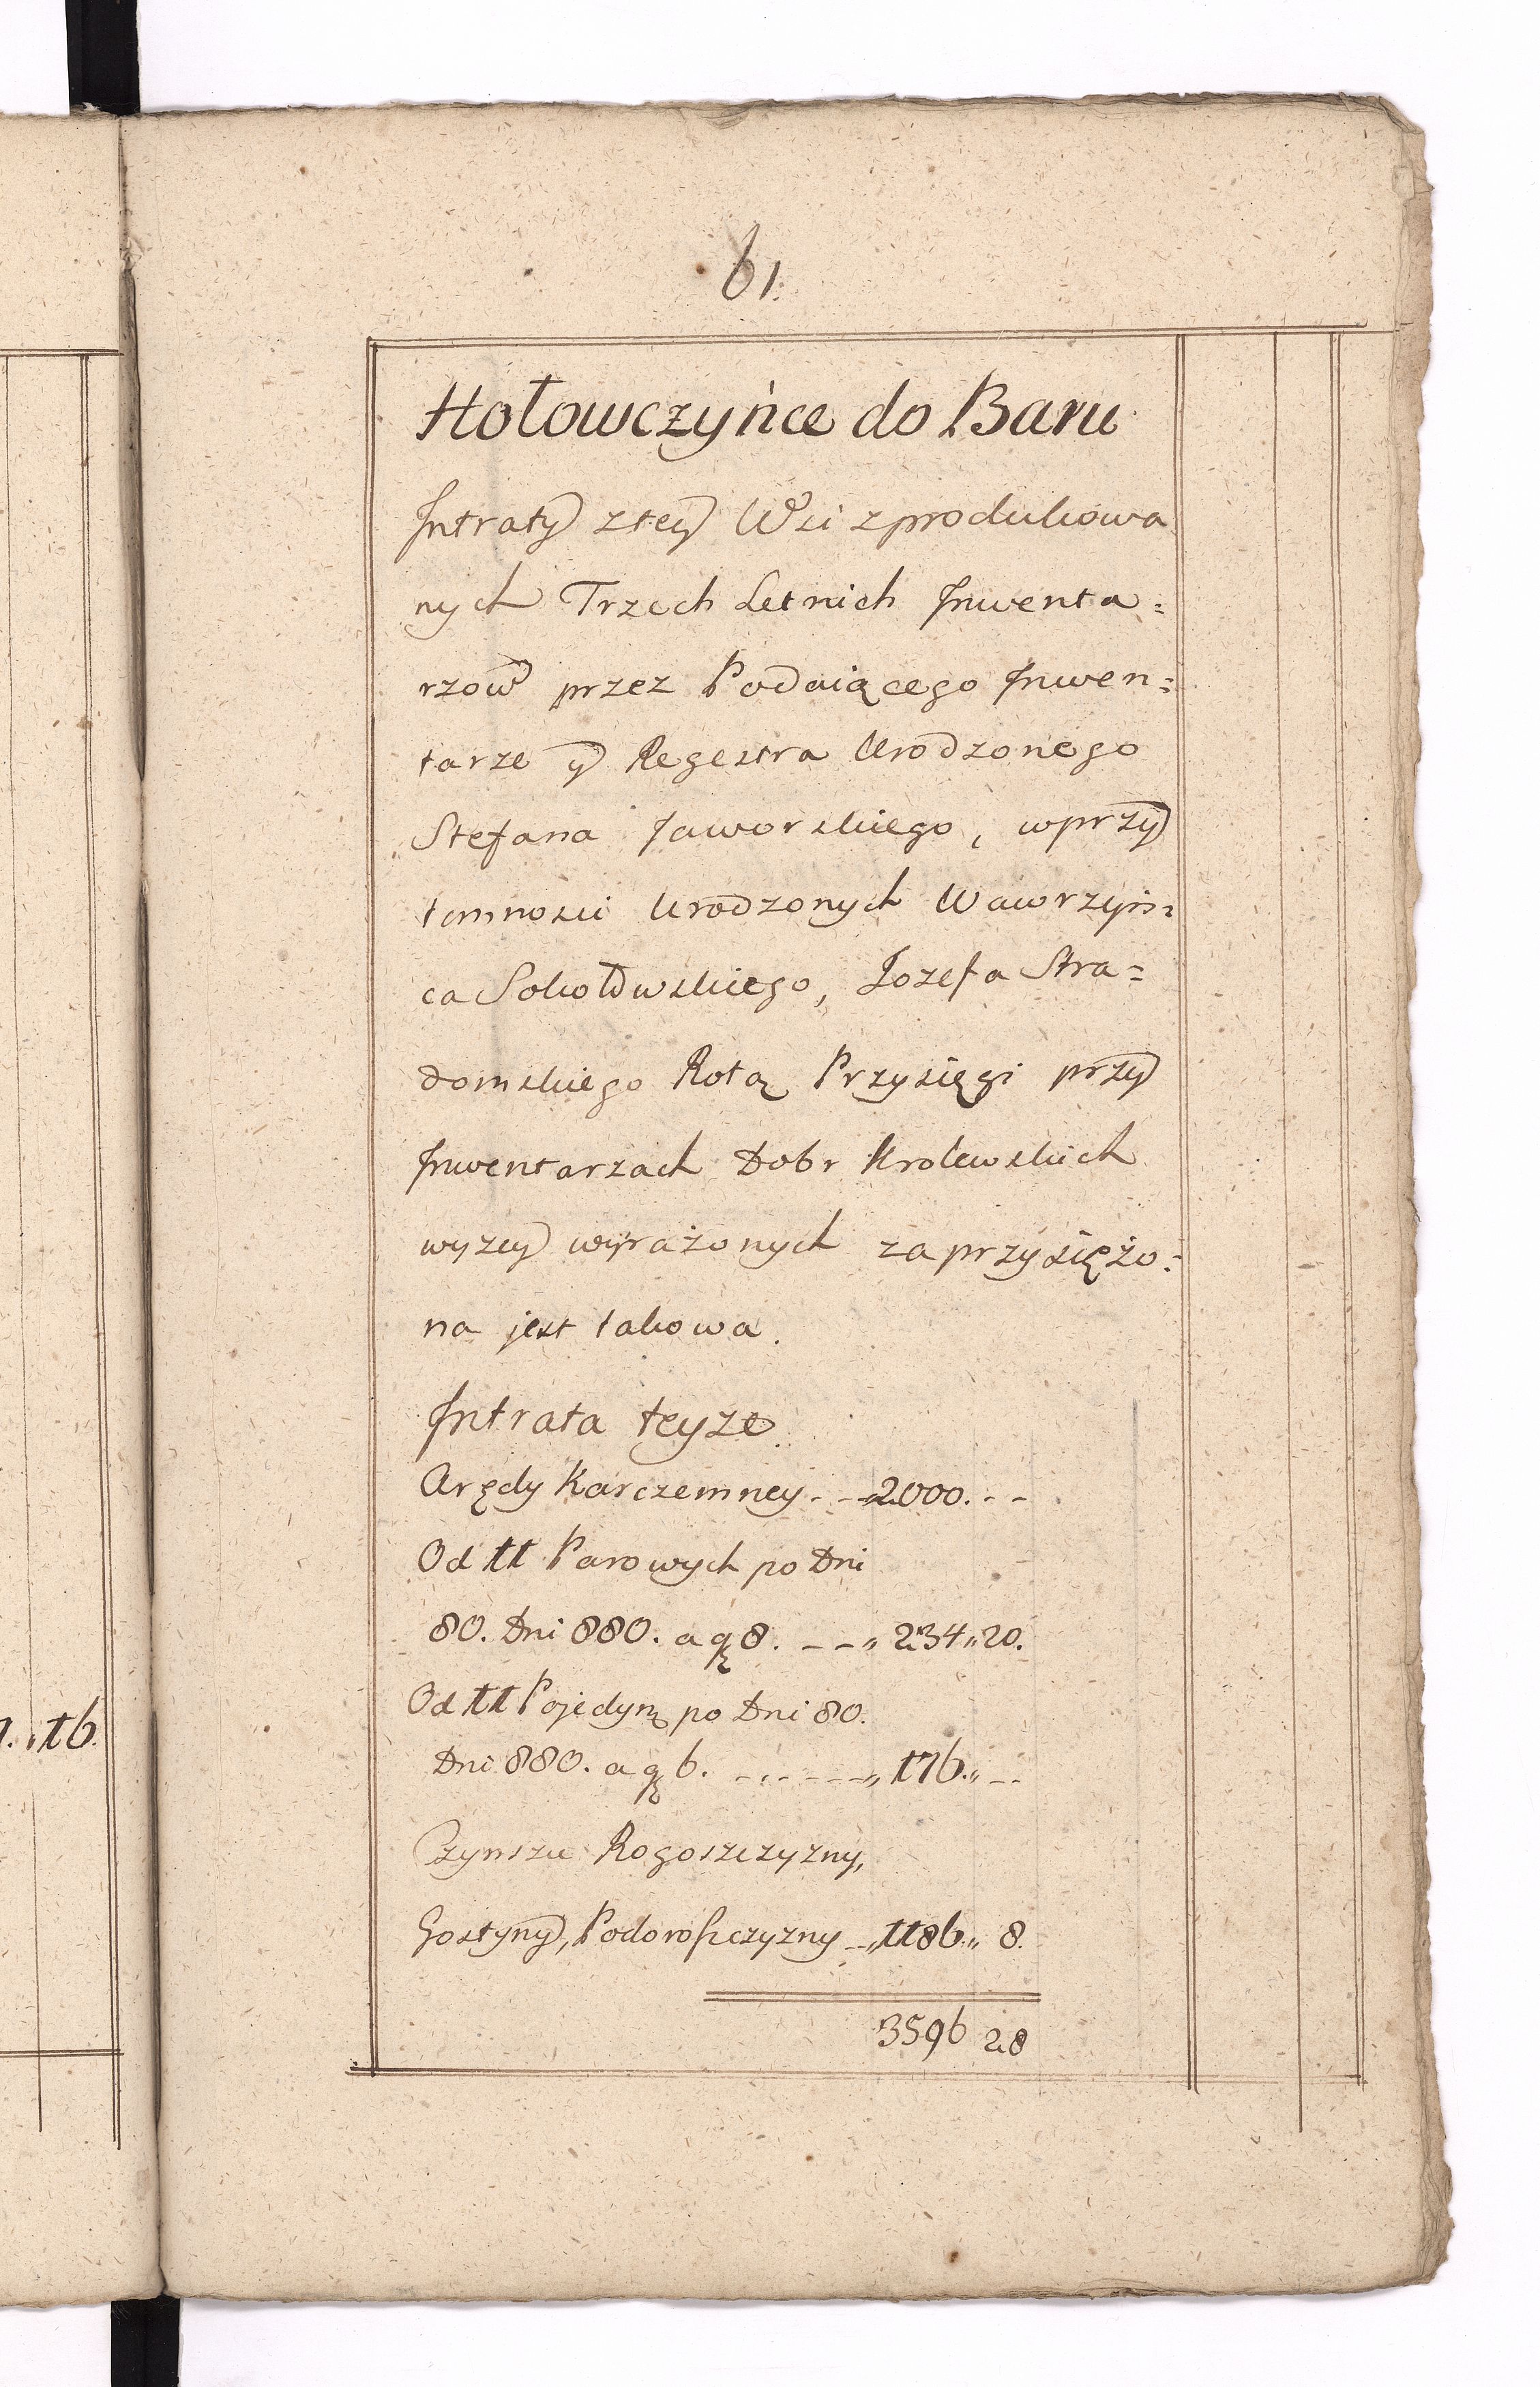 61.
Hołowczyńce do Baru
Intraty z tey Wsi zprodukowa
nych Trzech Letnich Inwenta=
rzow przez Podaiącego Inwen=
tarze y Regestra Urodzonego
Stefana Jaworskiego, wprzy
tomnosci Urodzonych Wawrzyń=
ca Sokołowskiego, Jozefa Stra=
domskiego Rotą Przysięgi przy
Inwentarzach Dobr Krolewskich
wyzey wyrażonych zaprzysiężo=
na jest takowa.
Intrata teyze.
Arędy Karczemney - - 2000. - -
Od 11 Parowych po Dni
80. Dni 880. a gȝ 8. - - „ 234 „ 20.
Od 11 Pojedynȝ po Dni 80.
Dni 880. a gȝ 6. - - - - - „ 176. „ - -
Czynszu Rogoszczyzny,
Gostyny, Podoroszczyzny - „ 1186. „ 8.
3596 28
. „ 16.